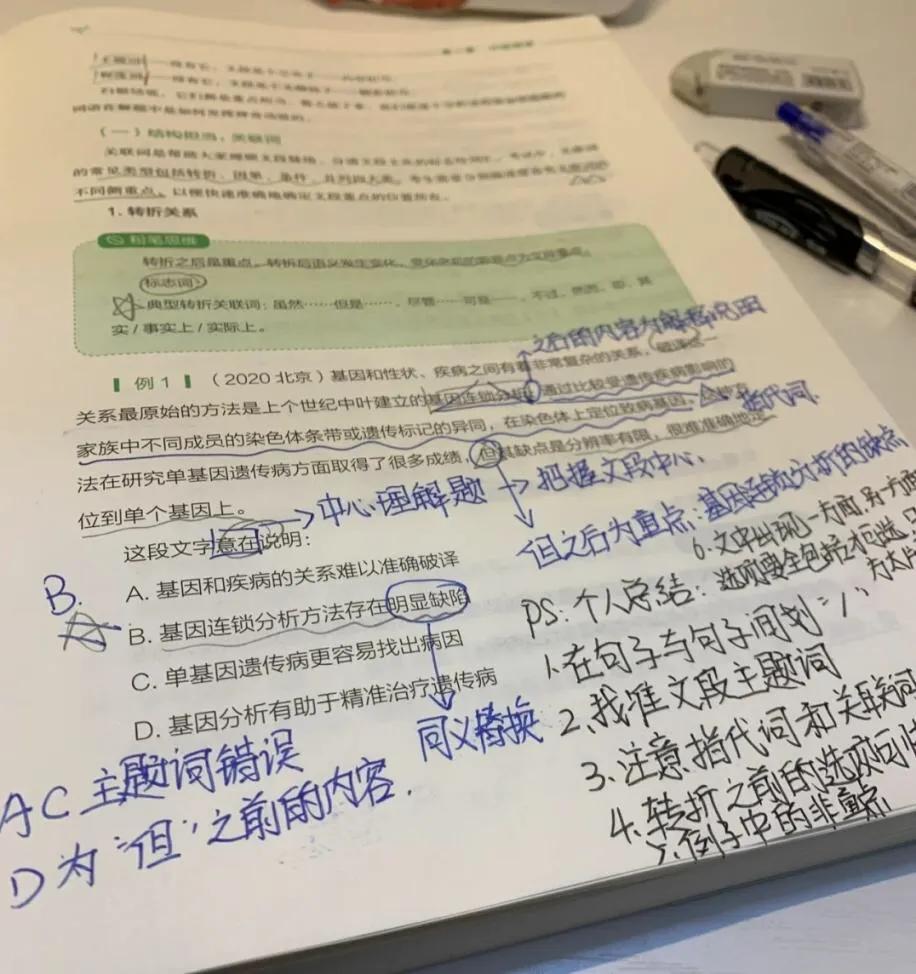 （一）结构担当，关联词
关联词是帮助大家理顺文段脉络、
的常见类型包括转折、因果、条件、并列四大类。
不同侧重点。以便快速准确地确定文段重点的位置所在。
1. 转折关系
粉笔思维
转折之后是重点。转折后语义发生变化，
标志词：
典型转折关联词：虽然……但是……，尽管……可是……，不过，然而，却，其
实/事实上/实际上。
之后的内容为解释说明
例1 （2020 北京）基因和性状、疾病之间有着非常复杂的关系，破译这一
关系最原始的方法是上个世纪中叶建立的基因连锁分析，通过比较受遗传疾病影响的
家族中不同成员的染色体条带或遗传标记的异同，在染色体上定位致病基因。这种方
指代词
法在研究单基因遗传病方面取得了很多成绩，但其缺点是分辨率有限，很难准确地定
位到单个基因上。
中心理解题 把握文段中心、
但之后为重点：基因连锁分析的缺点
这段文字意在说明：
A. 基因和疾病的关系难以准确破译
B.
B. 基因连锁分析方法存在明显缺陷
C. 单基因遗传病更容易找出病因
D. 基因分析有助于精准治疗遗传病
同义替换
AC 主题词错误
D 为“但”之前的内容.
6. 文中出现一方面,另一方面
PS: 个人总结: 选项要全包括才可选,
1. 在句子与句子间划“/”
2、找准文段主题词
3、注意指代词和关联词
4、转折之前的选项可
5、例子中的非重点